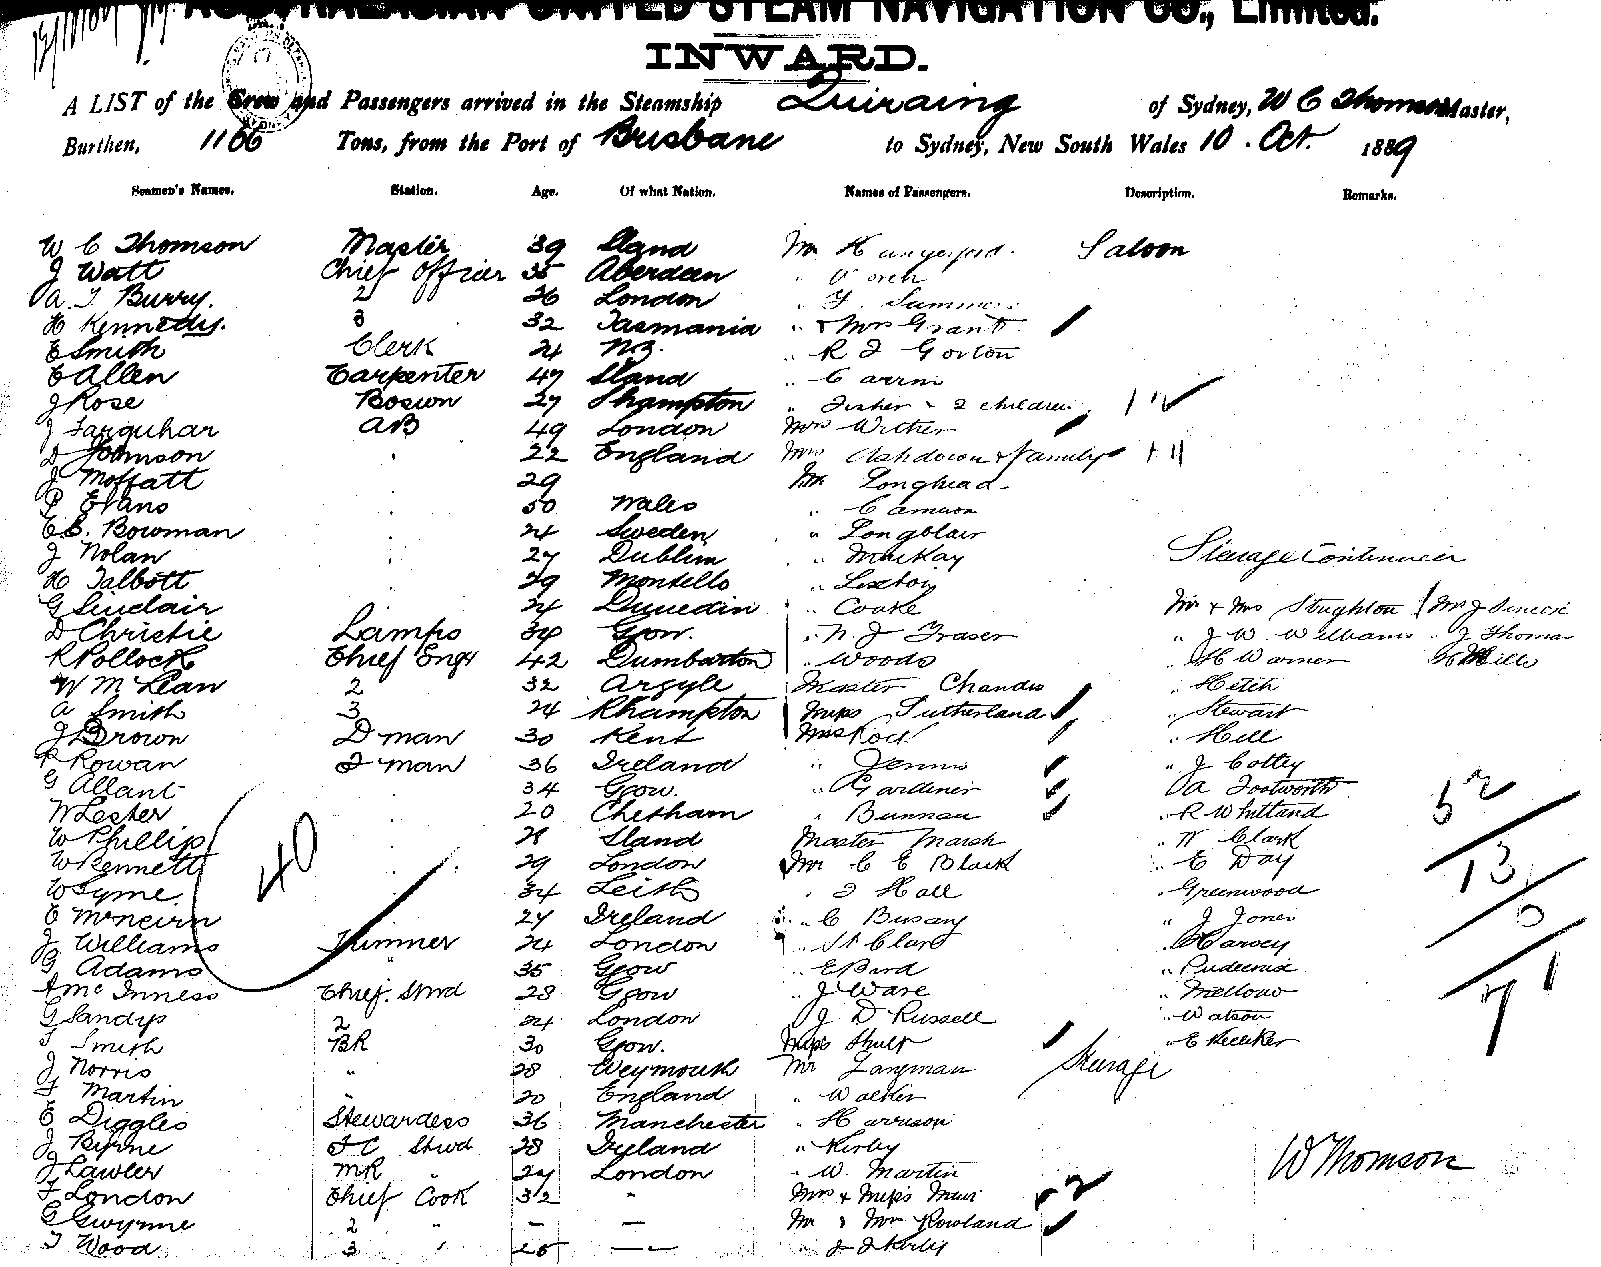 AUSTRALASIAN UNITED STEAM NAVIGATION CO., Limited.
INWARD.
A LIST of the Crew and Passengers arrived in the Steamship Quiraing of Sydney, W C Thomson Master,
Burthen, 1166 Tons, from the Port of Brisbane to Sydney, New South Wales 10 . Oct. 1889
Seamen's Names. Station. Age. Of what Nation. Names of Passengers. Description. Remarks.
W C Thomson Master 39 Sland Mr Hungerford. Saloon
J Watt Chief Officer 35 Aberdeen
A J Burry. 2 26 London " F. Summers
H Kennedy. 3 32 Tasmania " & Mrs Grant
E Smith Clerk 24 NZ. " R J Gorton
E Allen Carpenter 47 Sland " Cairns
J Rose Bosun 27 Shampton " Fisher & 2 children
J Farquhar AB 49 London Mrs Wither
D Johnson 22 England Mrs Ashdown & family
J Moffatt 29 Mr Longhead
P Evans 50 Wales " Cameron
C B. Bowman 24 Sweden " Longblair
J Nolan 27 Dublin " MacKay Steerage Continued
H Talbott 29 Montello
G Sinclair 24 Dunedin " Cooke Mr & Mrs Stughton Mr J
D Christie Lamps 34 Gow. " N J Fraser " J W. Williams " J Thomas
R Pollock Chief Engr 42 Dumbarton " Woods " H Warner Mills
W McLean 2 32 Argyle Master Chandos
A Smith 3 24 Rhampton Miss Sutherland " Stewart
J Brown D man 30 Kent Mrs Rock " Hill
R Rowan F man 36 Ireland " J Cottey
G Allant 34 Gow. " Gardiner " A Footworth
W Lester 20 Chetham " Bunnan " R Whitland
W Phillip 28 Sland Master Marsh " W Clark
W Kennett 29 London Mr C E Black " E Day
W Syme. 34 Leith " J Hall " Greenwood
E McNeirn 27 Ireland " C Busay " J Jones
J Williams Trimmer 24 London " St Clair " Harvey
G Adams " 35 Gow " E Bird
A Mc Inness Chief. Stwd 28 Gow " J Ware " Mellows
G Sandys 2 24 London " J D Russell " Watson
T Smith BR 30 Gow. Miss Shult " E Kelliker
J Norris " 28 Weymouth Mr Langman Steerage
F Martin " 20 England " Walker
E Diggles Stewardess 36 Manchester " Harrison
J Byrne F C Stwd 28 Ireland " Kirby
J Lawler MR " 24 London " W. Martin
F London Chief Cook 32 " Mrs & Miss Muir
G Gwynne 2 " — — Mr & Mrs Rowland
T Wood 3 " 25 — " J J Kirby
40
52
13
6
71
W Thomson